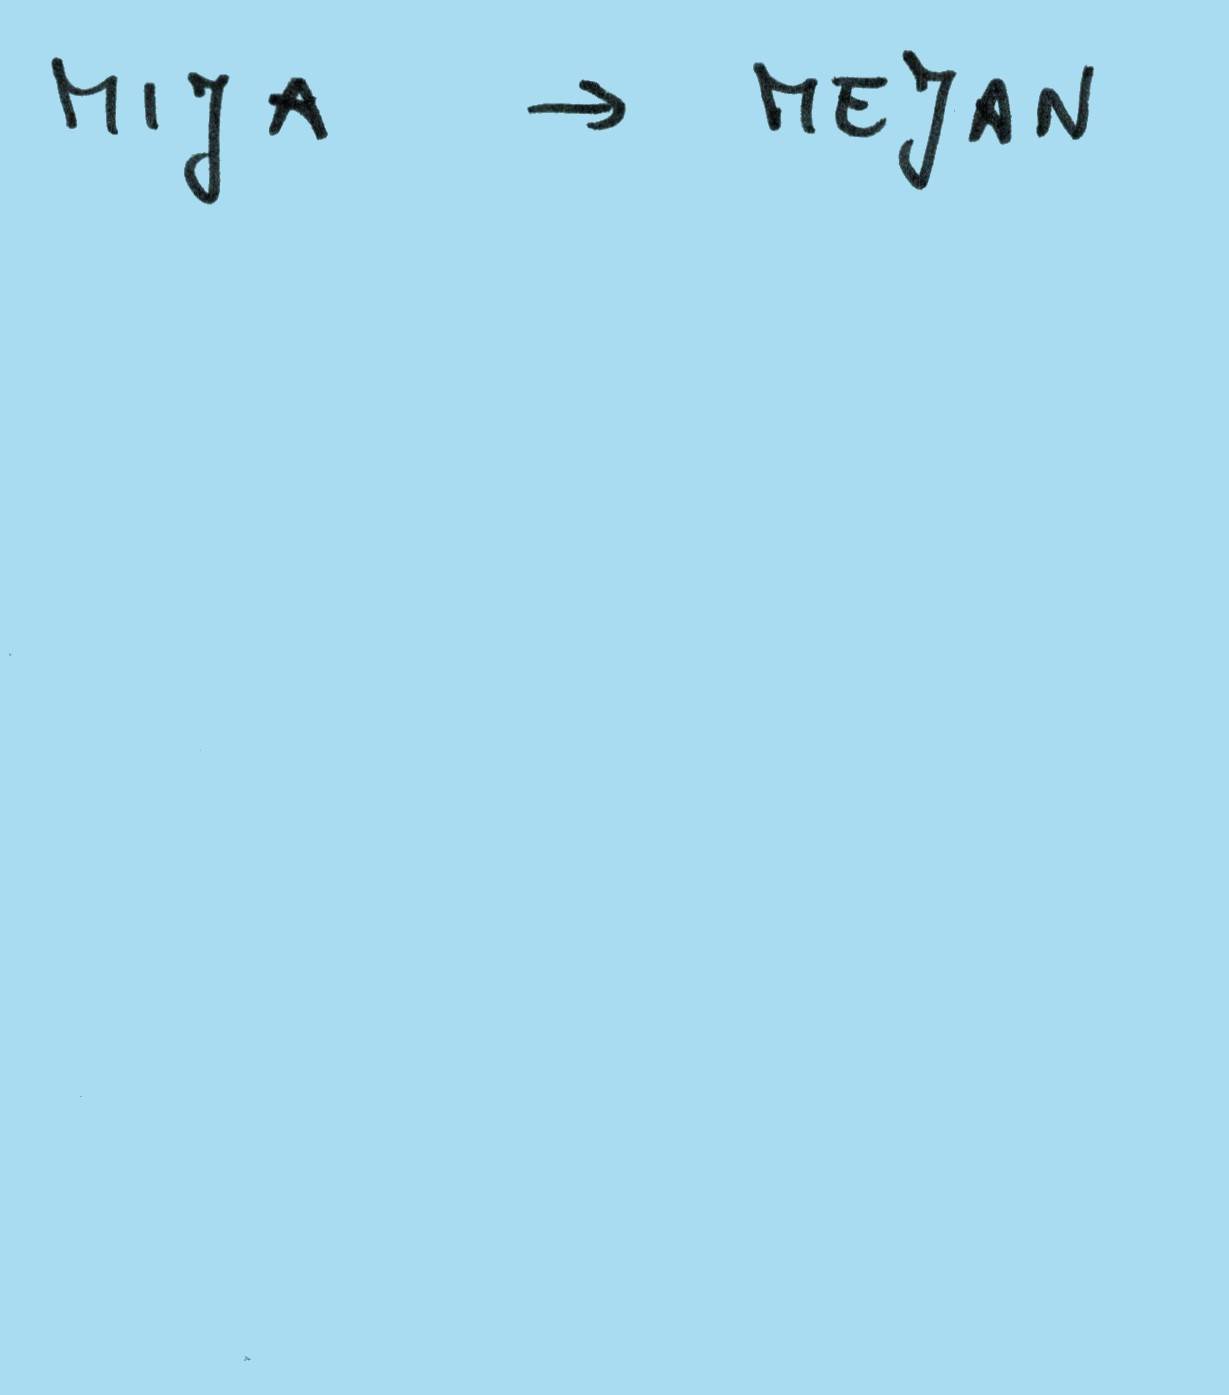 MIJA → MEJAN